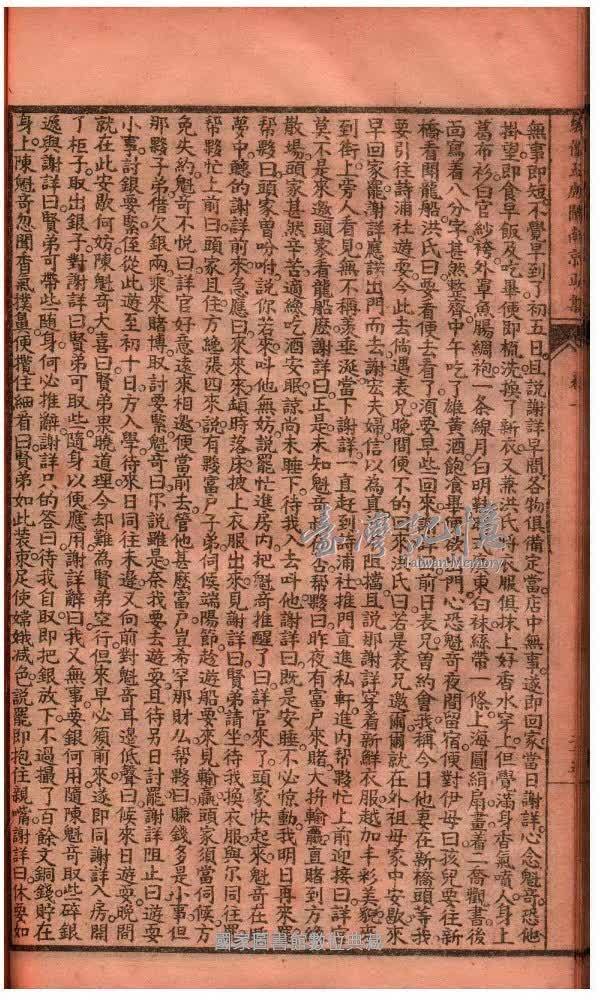 無事即短不覺早到了初五日且說謝詳早間各物俱備定當店中無事遂即回家當日謝詳心念魁奇恐他
掛望即食早飯及吃畢便即梳洗換了新衣又兼洪氏將衣服俱抹上好香水穿上但覺滿身香氣噴人身上
舊布衫曰官紗袴外罩魚腸綢袍一條線月白明鞋
東白袜絲帶一條上海圓絹扇畫着二喬觀書後
面寫着八分字甚然整齊中午吃了雄黃酒飽食畢
欲出門心恐魁奇夜間留宿便對伊母曰孩兒要往新
橋看鬧龍船洪氏曰要看便去看了須要早些回來
詳曰前日表兄曾約會我稱今日他要在新橋頭等我
要引往詩浦社遊耍今此去倘遇表兄晚間便不的回來洪氏曰若是表兄邀爾爾就在外祖母家中安歇來
早回家罷謝詳應諾出門而去謝宏夫婦信以為真
阻擋且說那謝詳穿着新鮮衣服越加丰彩美貌來
到街上旁人看見無不稱羨垂涎當下謝詳一直赶到詩浦社推門直進私軒進內帮夥忙上前迎接曰詳官
莫不是來邀頭家看龍船麼謝詳曰正是未知魁奇
否帮夥曰昨夜有富戶來賭大拚輸贏直賭到方後
散場頭家甚然辛苦適纔吃酒安眠諒尚未睡下待我入去叫他謝詳曰既是安睡不必驚動我明日再來罷
帮夥曰頭家曾吩咐說你若來叫他無妨說罷忙進房內把魁奇推醒了曰詳官來了頭家快起來魁奇在睡
夢中聽的謝詳前來急應曰來來來頃時落床披上衣服出來見謝詳曰賢弟請坐待我換衣服與尔同往罷
帮夥忙上前曰頭家且住方纔張四來說有夥富戶子弟伺候端陽節趁遊船要來見輸贏頭家須當伺候方
免失約魁奇不悅曰詳官好意遠來相邀便當前去管他甚麼富戶豈希罕那財仏帮夥曰賺錢多是小事但
那夥子弟借欠銀兩乘來賭博取討要緊魁奇曰尔說雖是奈我要去遊耍且待另日討罷謝詳阻止曰遊耍
小事討銀要緊侄從此遊至初十日方入學待來日同往未遲又向前對魁奇耳邊低聲曰候來日遊耍晚間
就在此安歇何妨陳魁奇大喜曰賢弟果曉道理今却難為賢弟空行但來早必須前來遂即同謝詳入房開
了柜子取出銀子對謝詳曰賢弟可取些隨身以便應用謝詳辭曰我又無事要銀何用隨陳魁奇取些碎銀
遞與謝詳曰賢弟可帶些隨身何必推辭謝詳只的答曰待我自取即把銀放下不過攝了百餘文銅錢貯在
身上陳魁奇忽聞香氣撲鼻便攬住細看曰賢弟如此裝束足使嫦娥减色說罷即抱住親嘴謝詳曰休要如
臺灣記憶
Taiwan Memory
國家圖書館數位典藏